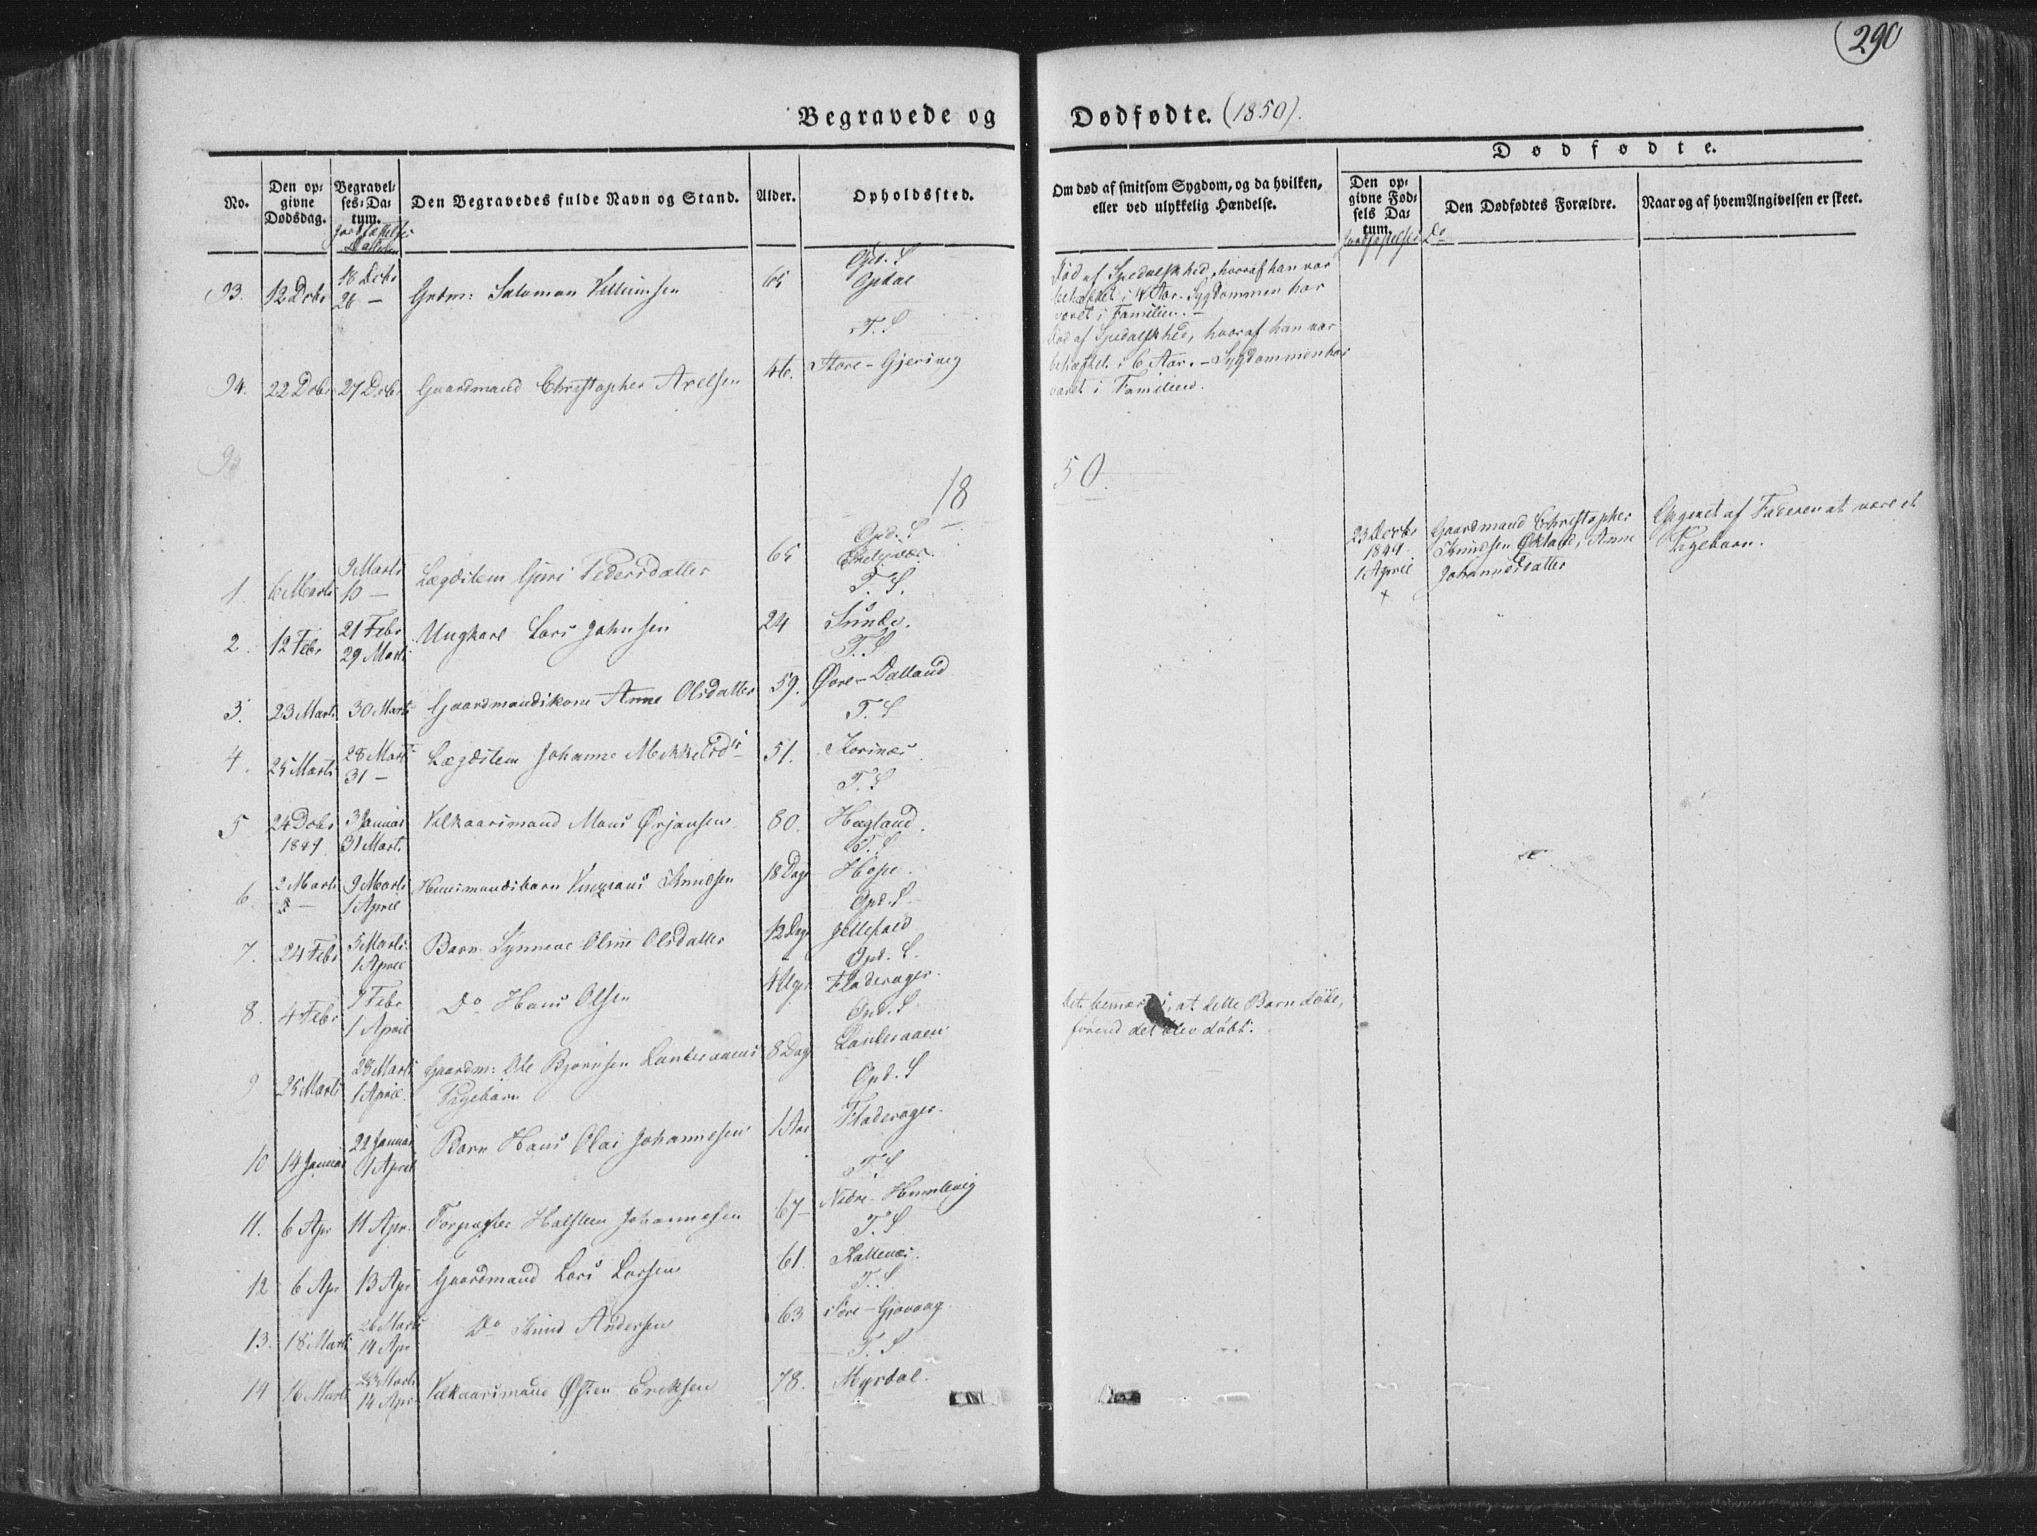 290
Begravede og Dødfødte. (1850).
No.
Den opgivne Dødsdag.
Begravelses-Datum.
Den Begravedes fulde Navn og Stand.
Alder.
Opholdssted.
Om død af smitsom Sygdom, og da hvilken, eller ved ulykkelig Hændelse.
Dødfødte.
Den opgivne Fødsels Datum.
Den Dødfødtes Forældre.
Naar og af hvem Angivelsen er skeet.
Opd. S
93. 12 Decbr 18 Decbr 26 — Grdm: Salamon Villumsen 65 Opdal
Død af Spedalskhed, hvoraf han var
behæftet i 4 Aar. Sygdommen har
været i Familien. —
T. S
94. 22 Decbr 27 Decbr Gaardmand Christopher Axelsen 46. Store-Gjersvig
Død af Spedalskhed, hvoraf han var
behæftet i 6 Aar. — Sygdommen har
været i Familien.
18 50.
Opd. S
1. 6 Marts 9 Marts 10 — Lægdslem Guri Pedersdatter 65
T. S.
2. 12 Febr 21 Febr 29 Marts Ungkarl Lars Johnsen 24 Sunde.
T. S.
3. 23 Marts 30 Marts Gaardmandskone Anne Olsdatter 59. Øvre-Dalland
T. S
4. 25 Marts 28 Marts 31 — Lægdslem Johanne Mikkelsdtr 51. Korsnæs
T. S
5 24 Decbr 1849 3 Januar 31 Marts Vilkaarsmand Mons Ørjansen 80. Hægland.
T. S
6. 2 Marts 9 Marts 1 April Huusmandsbarn Knudsen 18 Dage Hope.
Opd. S
7. 24 Febr 5 Marts 1 April Barn Synneve Oline Olsdatter 12 Dage Jettefald
Opd. S.
8. 4 Febr 9 Febr 1 April Do Hans Olsen 4 Uger Fladerager.
Det bemærkes, at dette Barn døde,
førend det blev døbt.
Opd. S
9 25 Marts 28 Marts 1 April Gaardm: Ole Bjørnsen Lanteraaens 8 Dage Lanteraaen
Pigebarn
Opd. S
10 14 Januar 22 Januar 1 April Barn Hans Olai Johannesen 1 Aar Fladerager.
T. S
11. 6 Apr 11 Apr. Forpagter Halsteen Johannesen 67 — Nedre-Humlevig
T. S
12 6 Apr 13 Apr Gaardmand Lars Larsen 61. Kattenæs.
T. S
13. 18 Marts 26 Marts 14 Apr Do Knud Andersen 63 Søre-Gjøvaag.
T. S.
14 16 Marts 23 Marts 14 Apr Vilkaarsmand Østen Eriksen 78. Myrdal.
23 Decbr 1849 1 April Gaardmand Christopher
Knudsen Økland, Anne
Johannesdatter
Opgivet af Faderen at være et
Pigebarn.